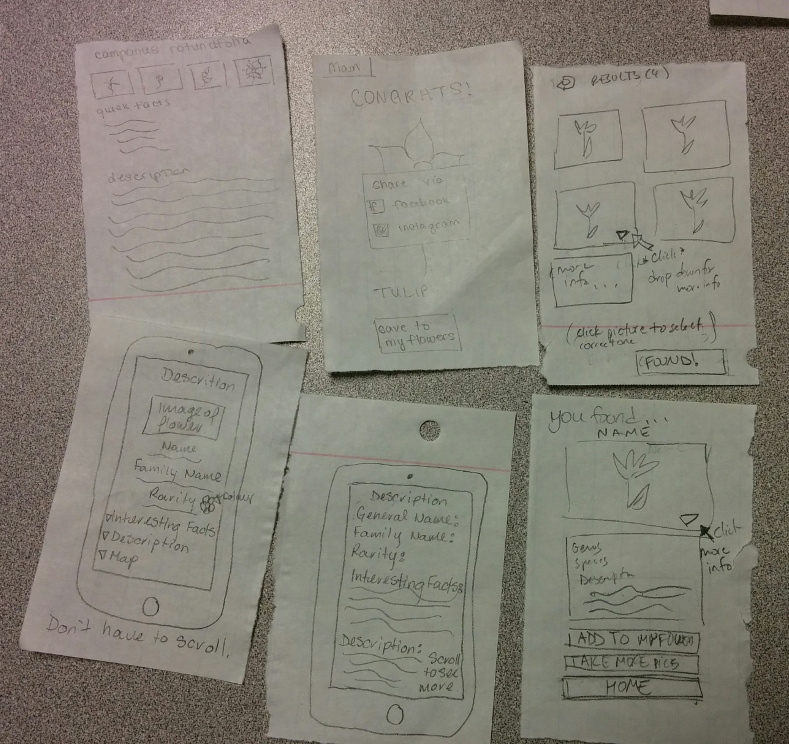 campanula rotundifolia
quick facts
description
Main
CONGRATS!
share via
facebook
instagram
TULIP
save to
my flowers
RESULTS (4)
more
info...
*Click*
drop down for
more info
(click picture to select
correct one)
FOUND!
Descrition
Image of
flower
Name
Family Name
Rarity
colour
Interesting Facts
Description
Map
Don't have to scroll.
Description
General Name:
Family Name:
Rarity:
Interesting Facts:
Description:
Scroll
to see
more
you found...
NAME
Click
more
info
Genus
Species
Description
ADD TO MY
TAKE MORE PICS
HOME